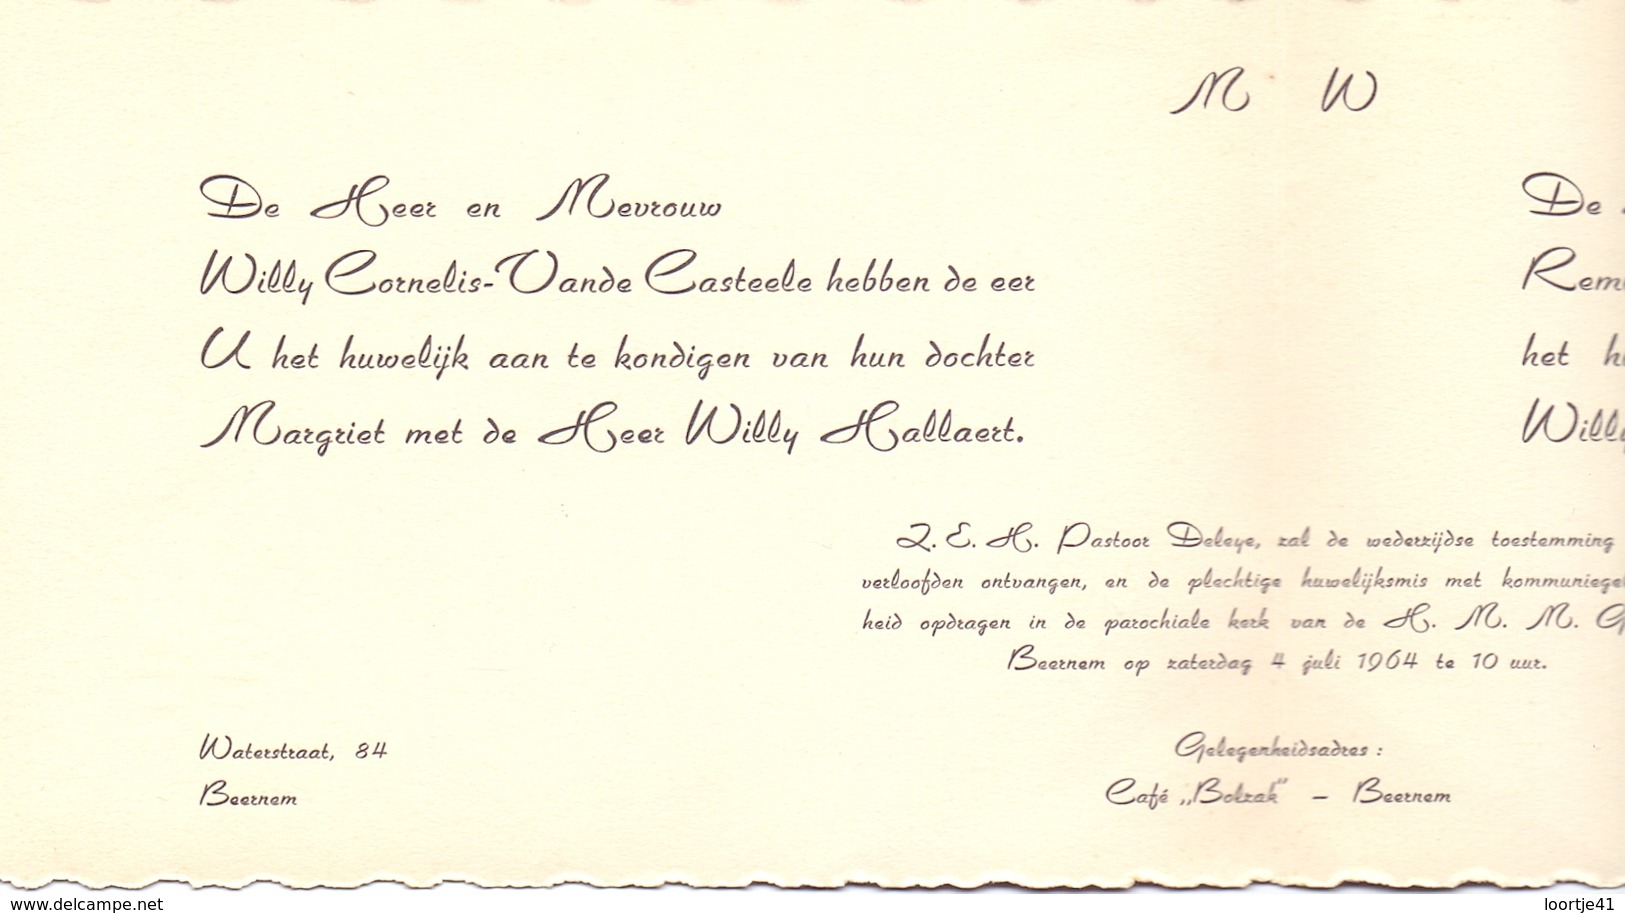 M W
De Heer en Mevrouw
Willy Cornelis-Vande Casteele hebben de eer
U het huwelijk aan te kondigen van hun dochter
Margriet met de Heer Willy Hallaert.
De
Rem
het h
Willy
Z. E. H. Pastoor Deleye, zal de wederzijdse toestemming
verloofden ontvangen, en de plechtige huwelijksmis met kommuniegel
heid opdragen in de parochiale kerk van de H. M. M. G
Beernem op zaterdag 4 juli 1964 te 10 uur.
Waterstraat, 84
Beernem
Gelegenheidsadres :
Café „Bolzak" - Beernem
www.delcampe.net
loortje41